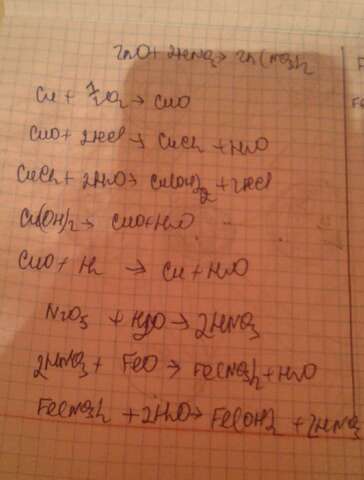 ZnO + 2HNO3 → Zn(NO3)2
Cu + 1/2O2 → CuO
CuO + 2HCl → CuCl2 + H2O
CuCl2 + 2H2O → Cu(OH)2 + 2HCl
Cu(OH)2 → CuO + H2O
CuO + H2 → Cu + H2O
N2O5 + H2O → 2HNO3
2HNO3 + FeO → Fe(NO3)2 + H2O
Fe(NO3)2 + 2H2O → Fe(OH)2 + 2HNO3